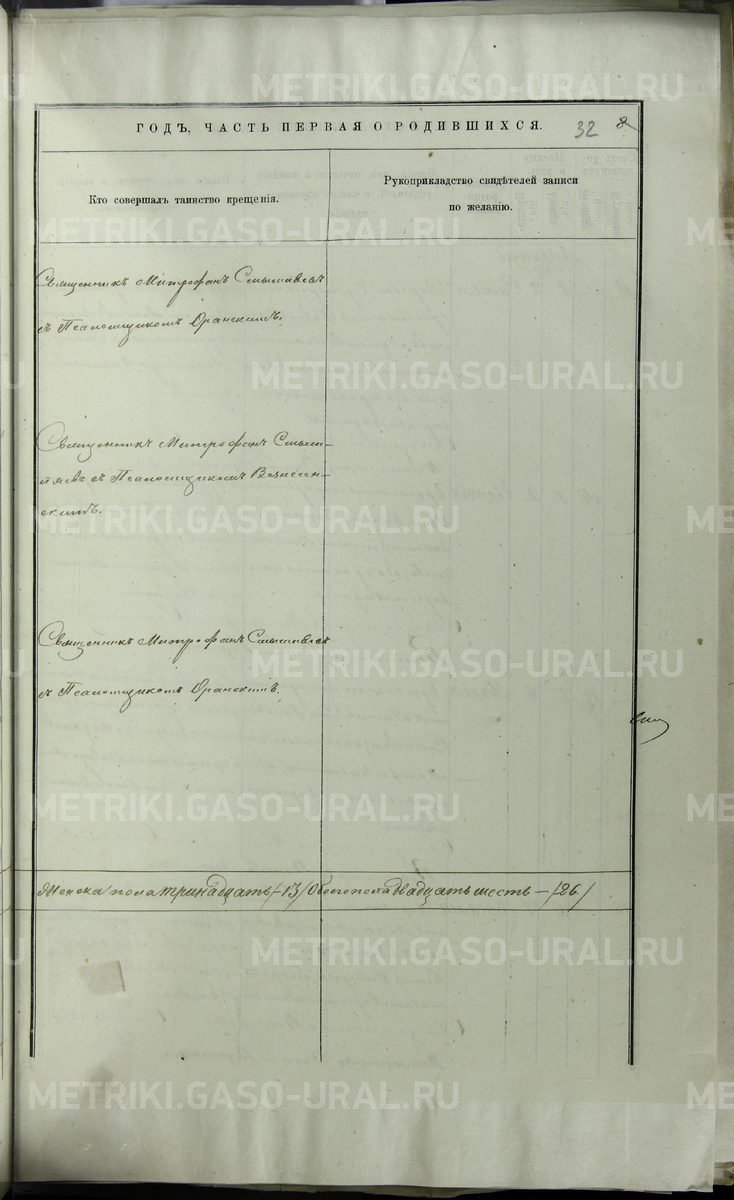 METRIKI.GASO-URAL.RU
ГОДЪ, ЧАСТЬ ПЕРВАЯ О РОДИВШИХСЯ.
32
8
Кто совершалъ таинство крещенія.
Рукоприкладство свидѣтелей записи
по желанію.
Священникъ Митрофанъ
съ Псаломщикомъ Оранскимъ.
Священникъ Митрофанъ
съ Псаломщикомъ Вознесен-
скимъ.
Священникъ Митрофанъ
съ Псаломщикомъ Оранскимъ.
Женска пола тринадцать /-13/ Обоего пола двадцать шесть - /26./